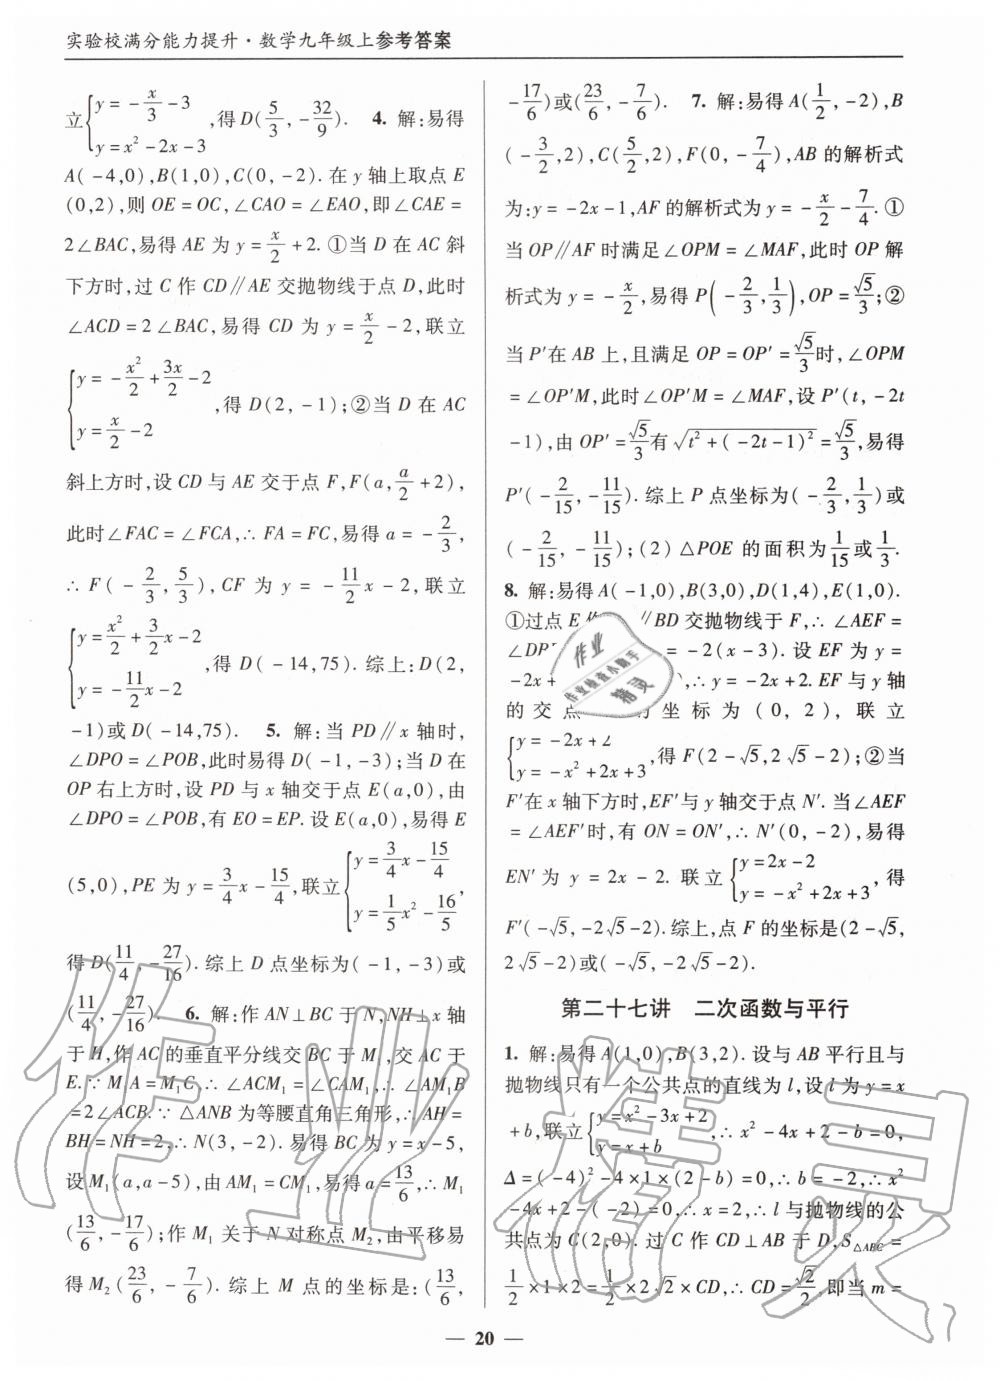 实验校满分能力提升·数学九年级上参考答案
立{y=-x/3-3, y=x²-2x-3,得D(5/3,-32/9). 4. 解:易得
A(-4,0),B(1,0),C(0,-2).在y轴上取点E
(0,2),则OE=OC,∠CAO=∠EAO,即∠CAE=
2∠BAC,易得AE为y=x/2+2.①当D在AC斜
下方时,过C作CD∥AE交抛物线于点D,此时
∠ACD=2∠BAC,易得CD为y=x/2-2,联立
{y=-x²/2+3x/2-2, y=x/2-2,得D(2,-1);②当D在AC
斜上方时,设CD与AE交于点F,F(a,a/2+2),
此时∠FAC=∠FCA,∴FA=FC,易得a=-2/3,
∴F(-2/3,5/3),CF为y=-11/2x-2,联立
{y=x²/2+3/2x-2, y=-11/2x-2,得D(-14,75).综上:D(2,
-1)或D(-14,75). 5. 解:当PD∥x轴时,
∠DPO=∠POB,此时易得D(-1,-3);当D在
OP右上方时,设PD与x轴交于点E(a,0),由
∠DPO=∠POB,有EO=EP.设E(a,0),易得E
(5,0),PE为y=3/4x-15/4,联立{y=3/4x-15/4, y=1/5x²-16/5,
得D(11/4,-27/16).综上D点坐标为(-1,-3)或
(11/4,-27/16). 6. 解:作AN⊥BC于N,NH⊥x轴
于H,作AC的垂直平分线交BC于M₁,交AC于
E.∵M₁A=M₁C,∴∠ACM₁=∠CAM₁,∴∠AM₁B
=2∠ACB.∵△ANB为等腰直角三角形,∴AH=
BH=NH=2,∴N(3,-2).易得BC为y=x-5,
设M₁(a,a-5),由AM₁=CM₁,易得a=13/6,∴M₁
(13/6,-17/6);作M₁关于N对称点M₂,由平移易
得M₂(23/6,-7/6).综上M点的坐标是:(13/6,
-17/6)或(23/6,-7/6). 7. 解:易得A(1/2,-2),B
(-3/2,2),C(5/2,2),F(0,-7/4),AB的解析式
为:y=-2x-1,AF的解析式为y=-x/2-7/4.①
当OP∥AF时满足∠OPM=∠MAF,此时OP解
析式为y=-x/2,易得P(-2/3,1/3),OP=√5/3;②
当P′在AB上,且满足OP=OP′=√5/3时,∠OPM
=∠OP′M,此时∠OP′M=∠MAF,设P′(t,-2t
-1),由OP′=√5/3有√(t²+(-2t-1)²)=√5/3,易得
P′(-2/15,-11/15).综上P点坐标为(-2/3,1/3)或
(-2/15,-11/15);(2)△POE的面积为1/15或1/3.
8. 解:易得A(-1,0),B(3,0),D(1,4),E(1,0).
①过点E作 ∥BD交抛物线于F,∴∠AEF=
∠DP =-2(x-3).设EF为y=
-2x+ ,∴y=-2x+2.EF与y轴
的交点 坐标为(0,2),联立
{y=-2x+2, y=-x²+2x+3,得F(2-√5,2√5-2);②当
F′在x轴下方时,EF′与y轴交于点N′.当∠AEF
=∠AEF′时,有ON=ON′,∴N′(0,-2),易得
EN′为y=2x-2.联立{y=2x-2, y=-x²+2x+3,得
F′(-√5,-2√5-2).综上,点F的坐标是(2-√5,
2√5-2)或(-√5,-2√5-2).
第二十七讲 二次函数与平行
1. 解:易得A(1,0),B(3,2).设与AB平行且与
抛物线只有一个公共点的直线为l,设l为y=x
+b,联立{y=x²-3x+2, y=x+b,∴x²-4x+2-b=0,
Δ=(-4)²-4×1×(2-b)=0,∴b=-2,∴x²
-4x+2-(-2)=0,∴x=2,∴l与抛物线的公
共点为C(2,0).过C作CD⊥AB于D,S△ABC=
1/2×1×2=1/2×2√2×CD,∴CD=√2/2,即当m=
— 20 —
作业
作业检查小助手
精灵
作业精灵